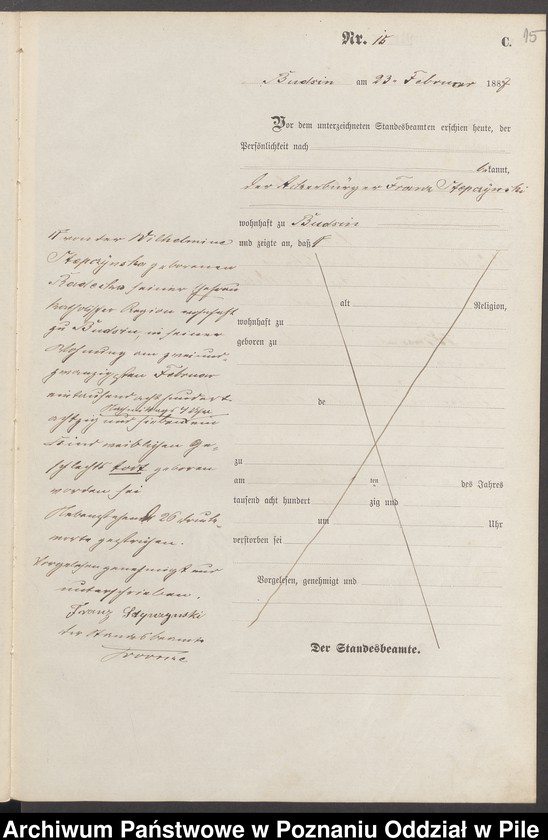 Nr. 15
C.
15
Budsin am 23. Februar 1887
Vor dem unterzeichneten Standesbeamten erschien heute, der
Persönlichkeit nach
bekannt,
der Ackerbürger Franz
wohnhaft zu Budsin
und zeigte an, daß
von der Wilhelmine
geborenen
seiner Ehefrau
katholischer Religion wohnhaft
zu Budsin, in seiner
Wohnung am zwei und
zwanzigsten Februar
eintausend acht hundert
achtzig und sieben
Nachmittags 4 Uhr ein
Kind weiblichen Ge-
schlechts todt geboren
worden sei
Nebenstehende 26 Druck-
worte gestrichen.
Vorgelesen genehmigt und
unterschrieben.
Franz
der Standesbeamte
alt Religion,
wohnhaft zu
geboren zu
de
zu
am ten des Jahres
tausend acht hundert zig und
um Uhr
verstorben sei
Vorgelesen, genehmigt und
Der Standesbeamte.
Archiwum Państwowe w Poznaniu Oddział w Pile